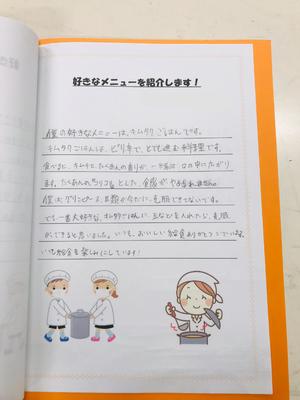 好きなメニューを紹介します!
僕の好きなメニューは、キムタクごはんです。
キムタクごはんは、ピリ辛で、とても進む料理です。
食べると、キムチと、たくあんの香りが、一気に口の中に広がり
ます。たくあんのコリコリとした、食感がやみつきに
僕は、グリンピース、豆類が今だに、克服できていません。
でも一番大好きな、キムタクごはんに、豆などを入れたら、克服
ができると思いました。いつも、おいしい給食ありがとうございます。
いつも給食を楽しみにしています!